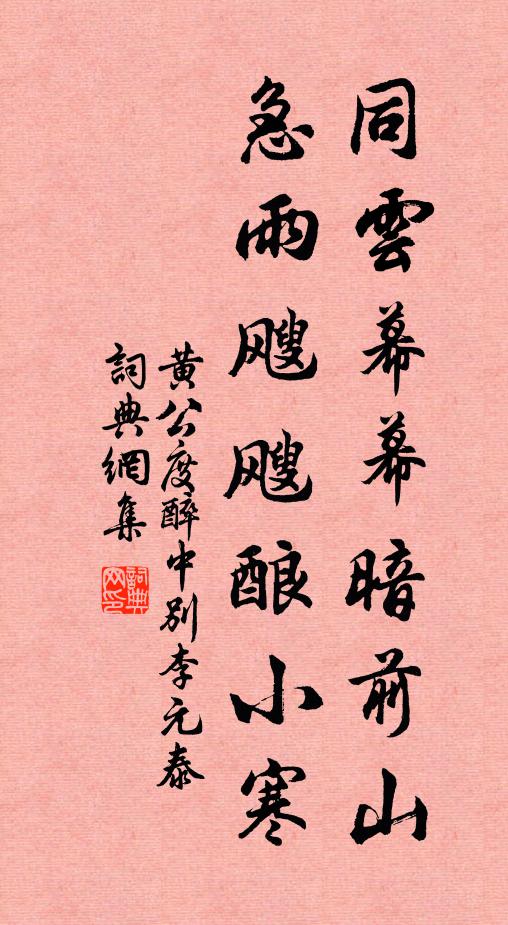 同雲幕幕暗前山
急雨飕飕酿小寒
黄公度醉中別李元泰
詞典網集
詞典网印